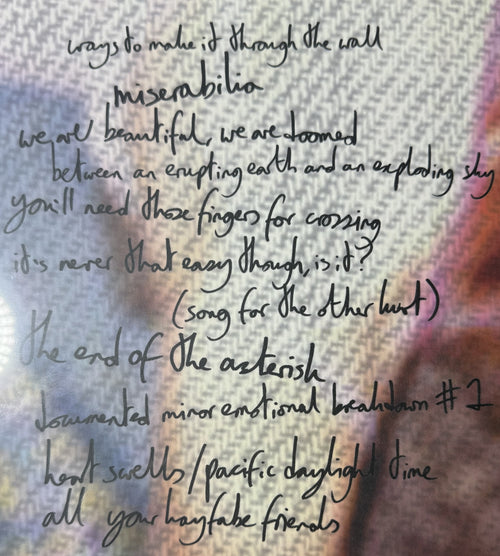 ways to make it through the wall
miserabilia
we are beautiful, we are doomed
between an erupting earth and an exploding sky
you'll need those fingers for crossing
it's never that easy though, is it?
(song for the other kurt)
the end of the asterisk
documented minor emotional breakdown #1
heart swells/pacific daylight time
all your kayfabe friends